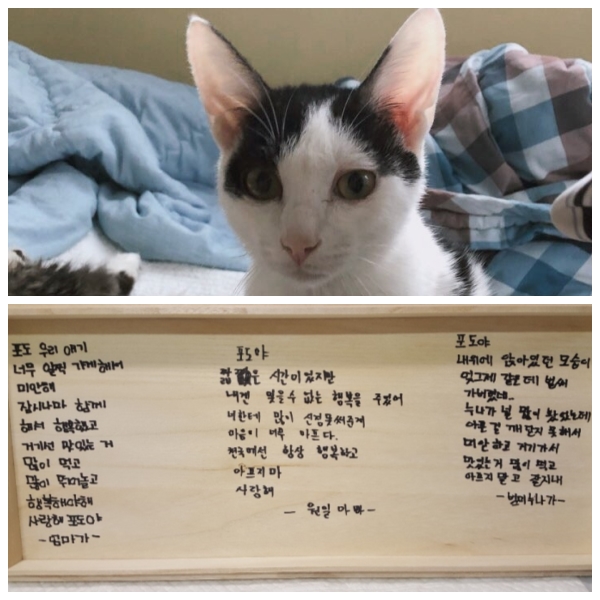 포도 우리 애기
너무 일찍 가게해서
미안해
잠시나마 함께
해서 행복했고
거기선 맛있는 거
많이 먹고
많이 뛰어놀고
행복해야해
사랑해 포도야
-엄마가-
포도야
짧은 시간이였지만
내겐 잊을수 없는 행복을 주었어
너한테 많이 신경못써준게
마음이 너무 아프다.
천국에선 항상 행복하고
아프지마
사랑해
- 원일 아빠 -
포도야
내위에 앉아있던 모습이
엊그제 같은데 벌써
가버렸네..
누나가 널 많이 찾았는데
아픈걸 깨닫지 못해서
미안하고 거기가서
맛있는거 많이 먹고
아프지 말고 잘지내
누나가-